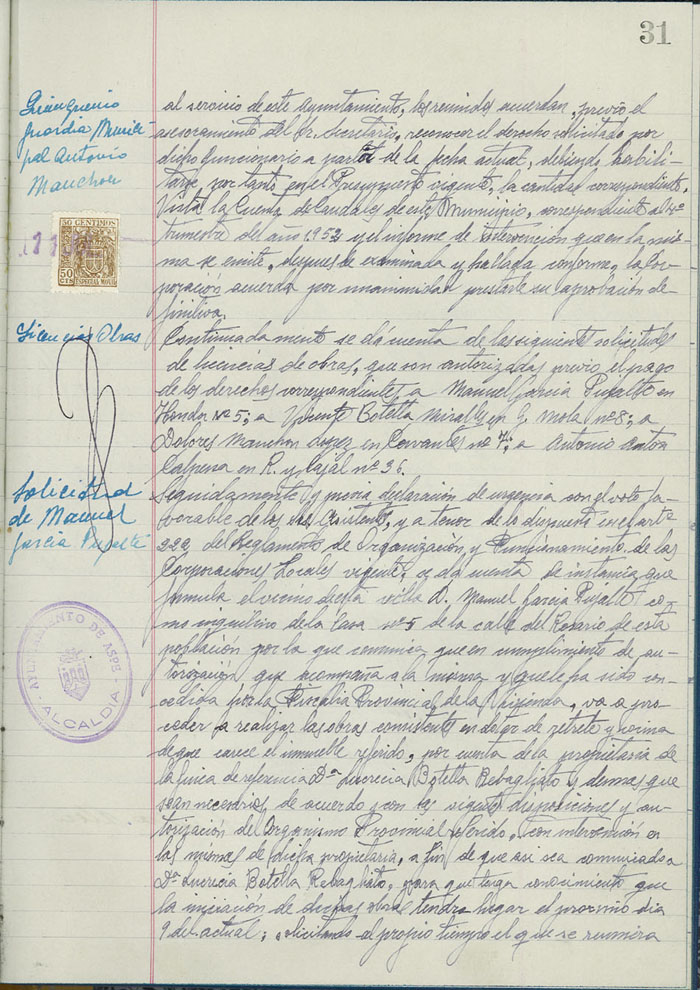 31
Quinquenio
guardia Munici
pal Antonio
Manchon
al servicio de este Ayuntamiento, los reunidos acuerdan, previo el
asesoramiento del Sr. Secretario, reconocer el derecho solicitado por
dicho funcionario a partir de la fecha actual, debiendo habili-
tarse, por tanto en el Presupuesto vigente, la cantidad correspondiente.
Vista la Cuenta de Caudales de este Municipio, correspondiente al 4º
trimestre del año 1952 y el informe de Intervención que en la mis-
ma se emite, despues de examinada y hallada conforme, la Cor-
poración acuerda por unanimidad prestarle su aprobación de-
finitiva.
50 CENTIMOS
50
CTS
ESPECIAL MOVIL
Licencias Obras
Continuadamente se dá cuenta de las siguientes solicitudes
de licencias de obras, que son autorizadas previo el pago
de los derechos correspondiente a Manuel Garcia Pujalte en
Hondon Nº 5; a Vicente Botella Miralles en G. Mola nº 8; a
Dolores Manchon Lopez en Cervantes nº 7; a Antonio Anton
Calpena en R. y Cajal nº 36.
Solicitud
de Manuel
Garcia Pujalte
Seguidamente y previa declaración de urgencia con el voto fa-
vorable de los Asistentes, y a tenor de lo dispuesto en el artº
222 del Reglamento de Organización y Funcionamiento de las
Corporaciones Locales vigente, se dá cuenta de instancia que
formula el vecino de esta villa D. Manuel Garcia Pujalte co-
mo inquilino de la Casa nº 5 de la calle del Rosario de esta
población por la que comunica que en cumplimiento de au-
torización que acompaña a la misma y que le ha sido con-
cedida por la Fiscalia Provincial de la Vivienda, va a pro-
ceder a realizar las obras consistente en dotar de retrete y cocina
de que carece el inmueble referido, por cuenta de la propietaria de
la finca de referencia Dª Lucrecia Botella Rebagliato y demas que
sean necesarios de acuerdo con las vigentes disposiciones y au-
torización del Organismo Provincial referido, con intervención en
las mismas de dicha propietaria, a fin de que asi sea comunicado a
Dª Lucrecia Botella Rebagliato, para que tenga conocimiento que
la iniciación de dichas obras tendra lugar el proximo dia
9 del actual; solicitando al propio tiempo el que se requiera
AYUNTAMIENTO DE ASPE
ALCALDIA